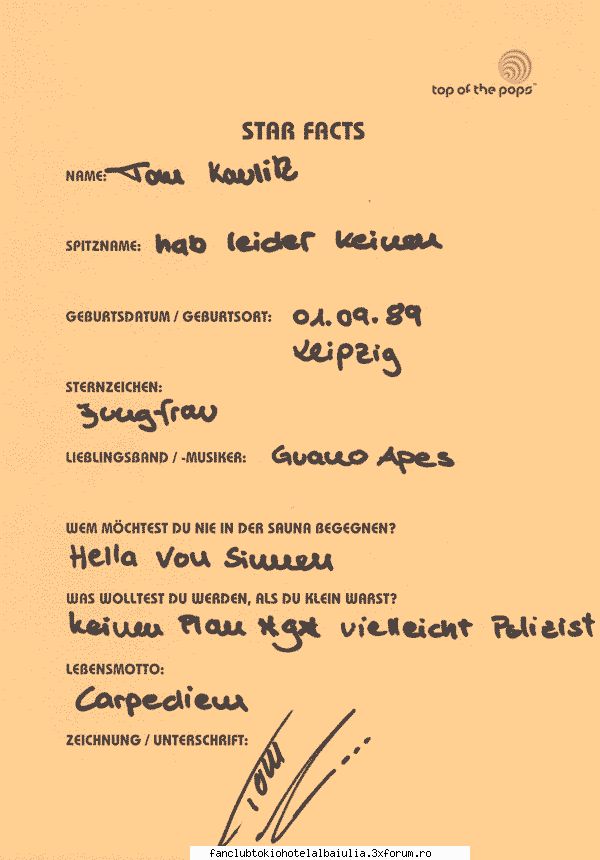 top of the pops™
STAR FACTS
NAME: Tom Kaulitz
SPITZNAME: hab leider keinen
GEBURTSDATUM / GEBURTSORT: 01.09.89
Leipzig
STERNZEICHEN:
Jungfrau
LIEBLINGSBAND / -MUSIKER: Guano Apes
WEM MÖCHTEST DU NIE IN DER SAUNA BEGEGNEN?
Hella von Sinnen
WAS WOLLTEST DU WERDEN, ALS DU KLEIN WARST?
keinen Plan *g* vielleicht Polizist
LEBENSMOTTO:
Carpediem
ZEICHNUNG / UNTERSCHRIFT:
Tom
fanclubtokiohotelalbaiulia.3xforum.ro